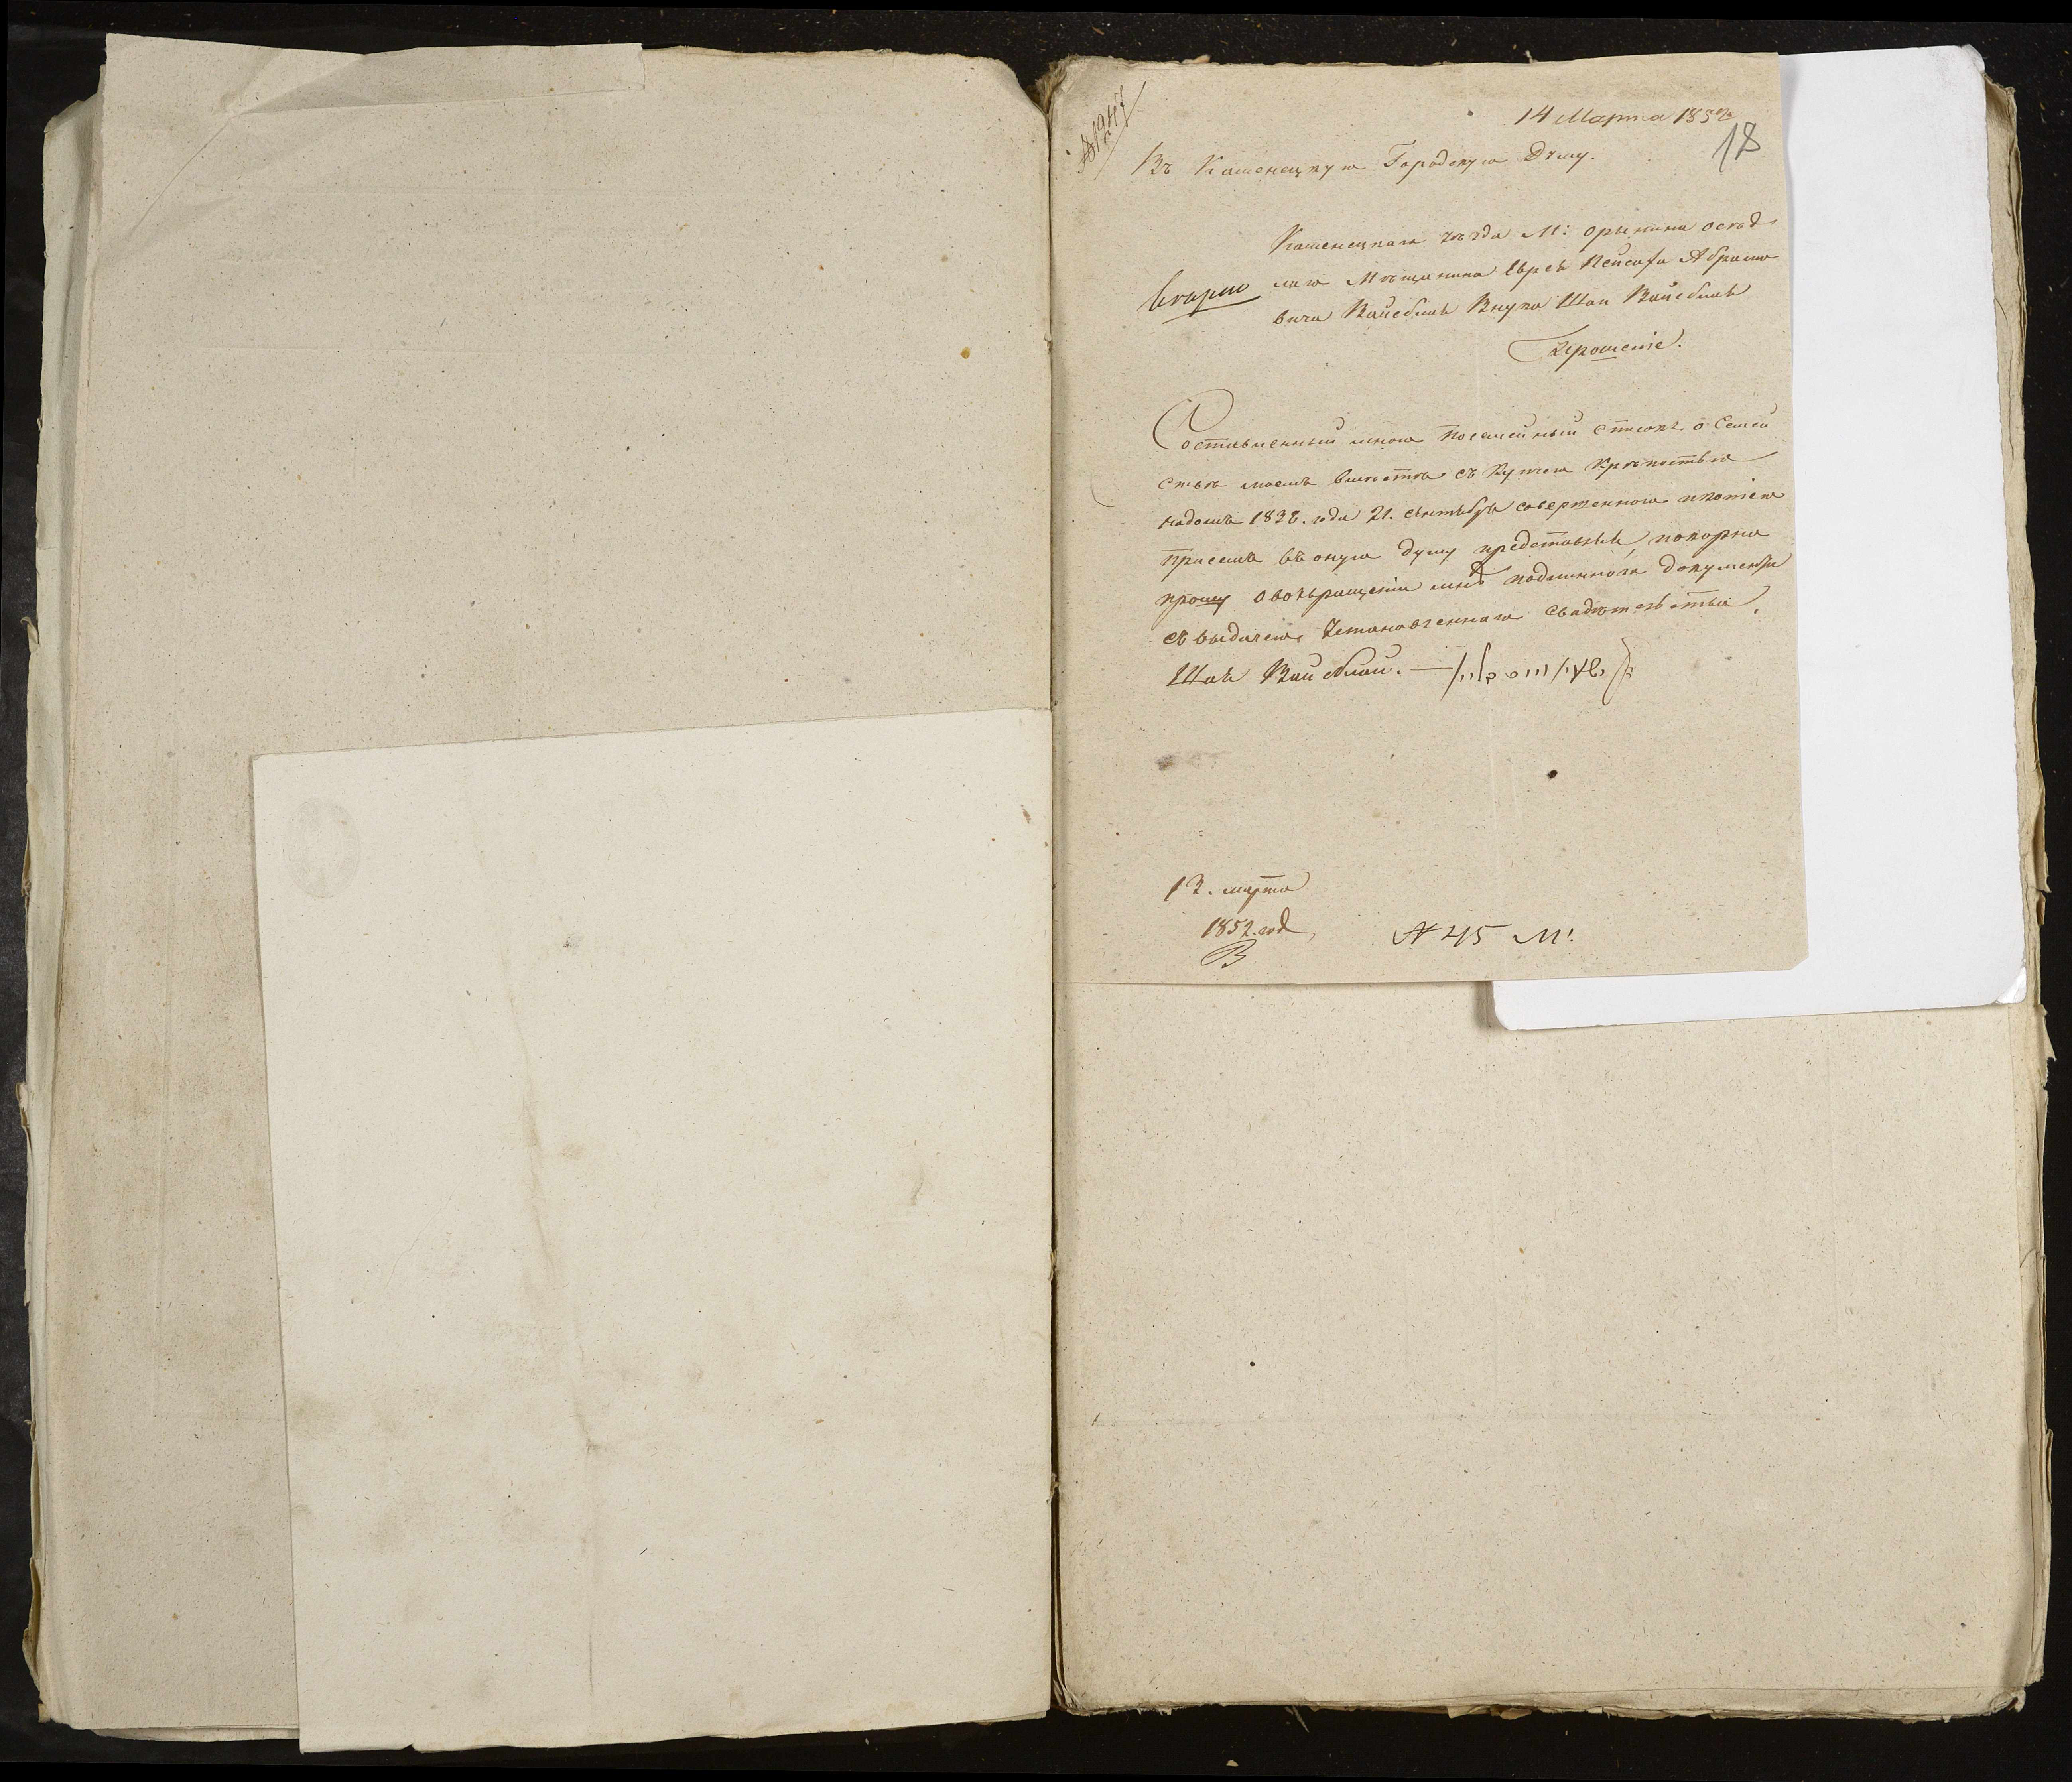 14 Марта 1852
18
Въ Каменецкую Городскую Думу.
Каменецкаго уезда М: Орынина осѣд
лаго Мѣщанина Еврея Пейсаха Абрамо
вича Вайсблай Внука Шаи Вайсблай
Прошеніе.
Составленный мною посемейный списокъ о Семей
ствѣ моемъ вмѣстѣ съ Купчею Крѣпостью
надомъ 1838. года 21. сентября совершенною и копіею
присемъ въ оную думу представляя, покорно
прошу о возвращеніи мнѣ подлиннаго документа
съ выдачею установленнаго свидѣтельства.
Шая Вайсблай. —
13. марта
1852. год
В
№ 45 М: